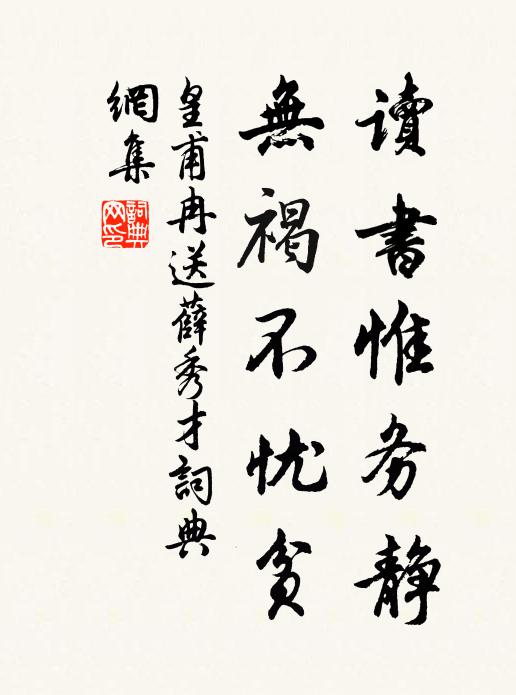 讀書惟务静
無褐不忧貧
皇甫冉送薛秀才詞典
網集
詞典网印